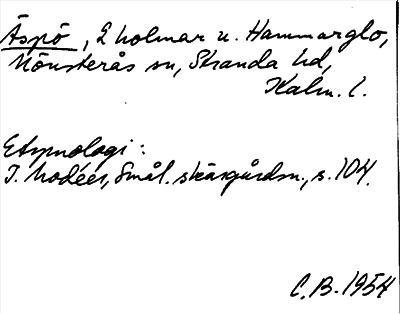 Äspö, 2 holmar u. Hammarglo,
Mönsterås sn, Stranda hd,
Kalm. l.
Etymologi:
I. Modéer, Smål. skärgårdsn., s. 104.
C.B. 1954